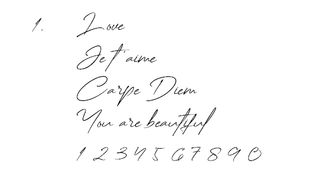 1. Love
Je t'aime
Carpe Diem
You are beautiful
1 2 3 4 5 6 7 8 9 0